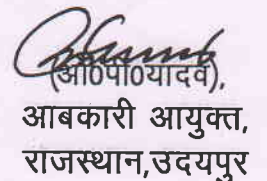 (ओ0पी0यादव),
आबकारी आयुक्त,
राजस्थान,उदयपुर